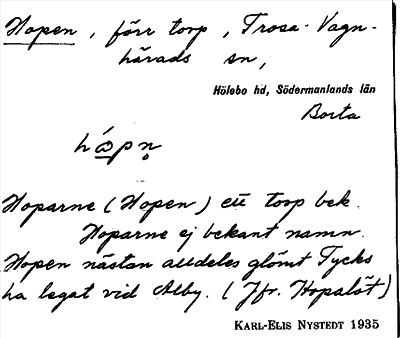 Hopen, förr torp, Trosa-Vagn-
härads sn,
Hölebo hd, Södermanlands län
Borta
Hoparne (Hopen) ett torp bek.
Hoparne ej bekant namn.
Hopen nästan alldeles glömt Tycks
ha legat vid Alby. (Jfr. Hopalöt)
KARL-ELIS NYSTEDT 1935